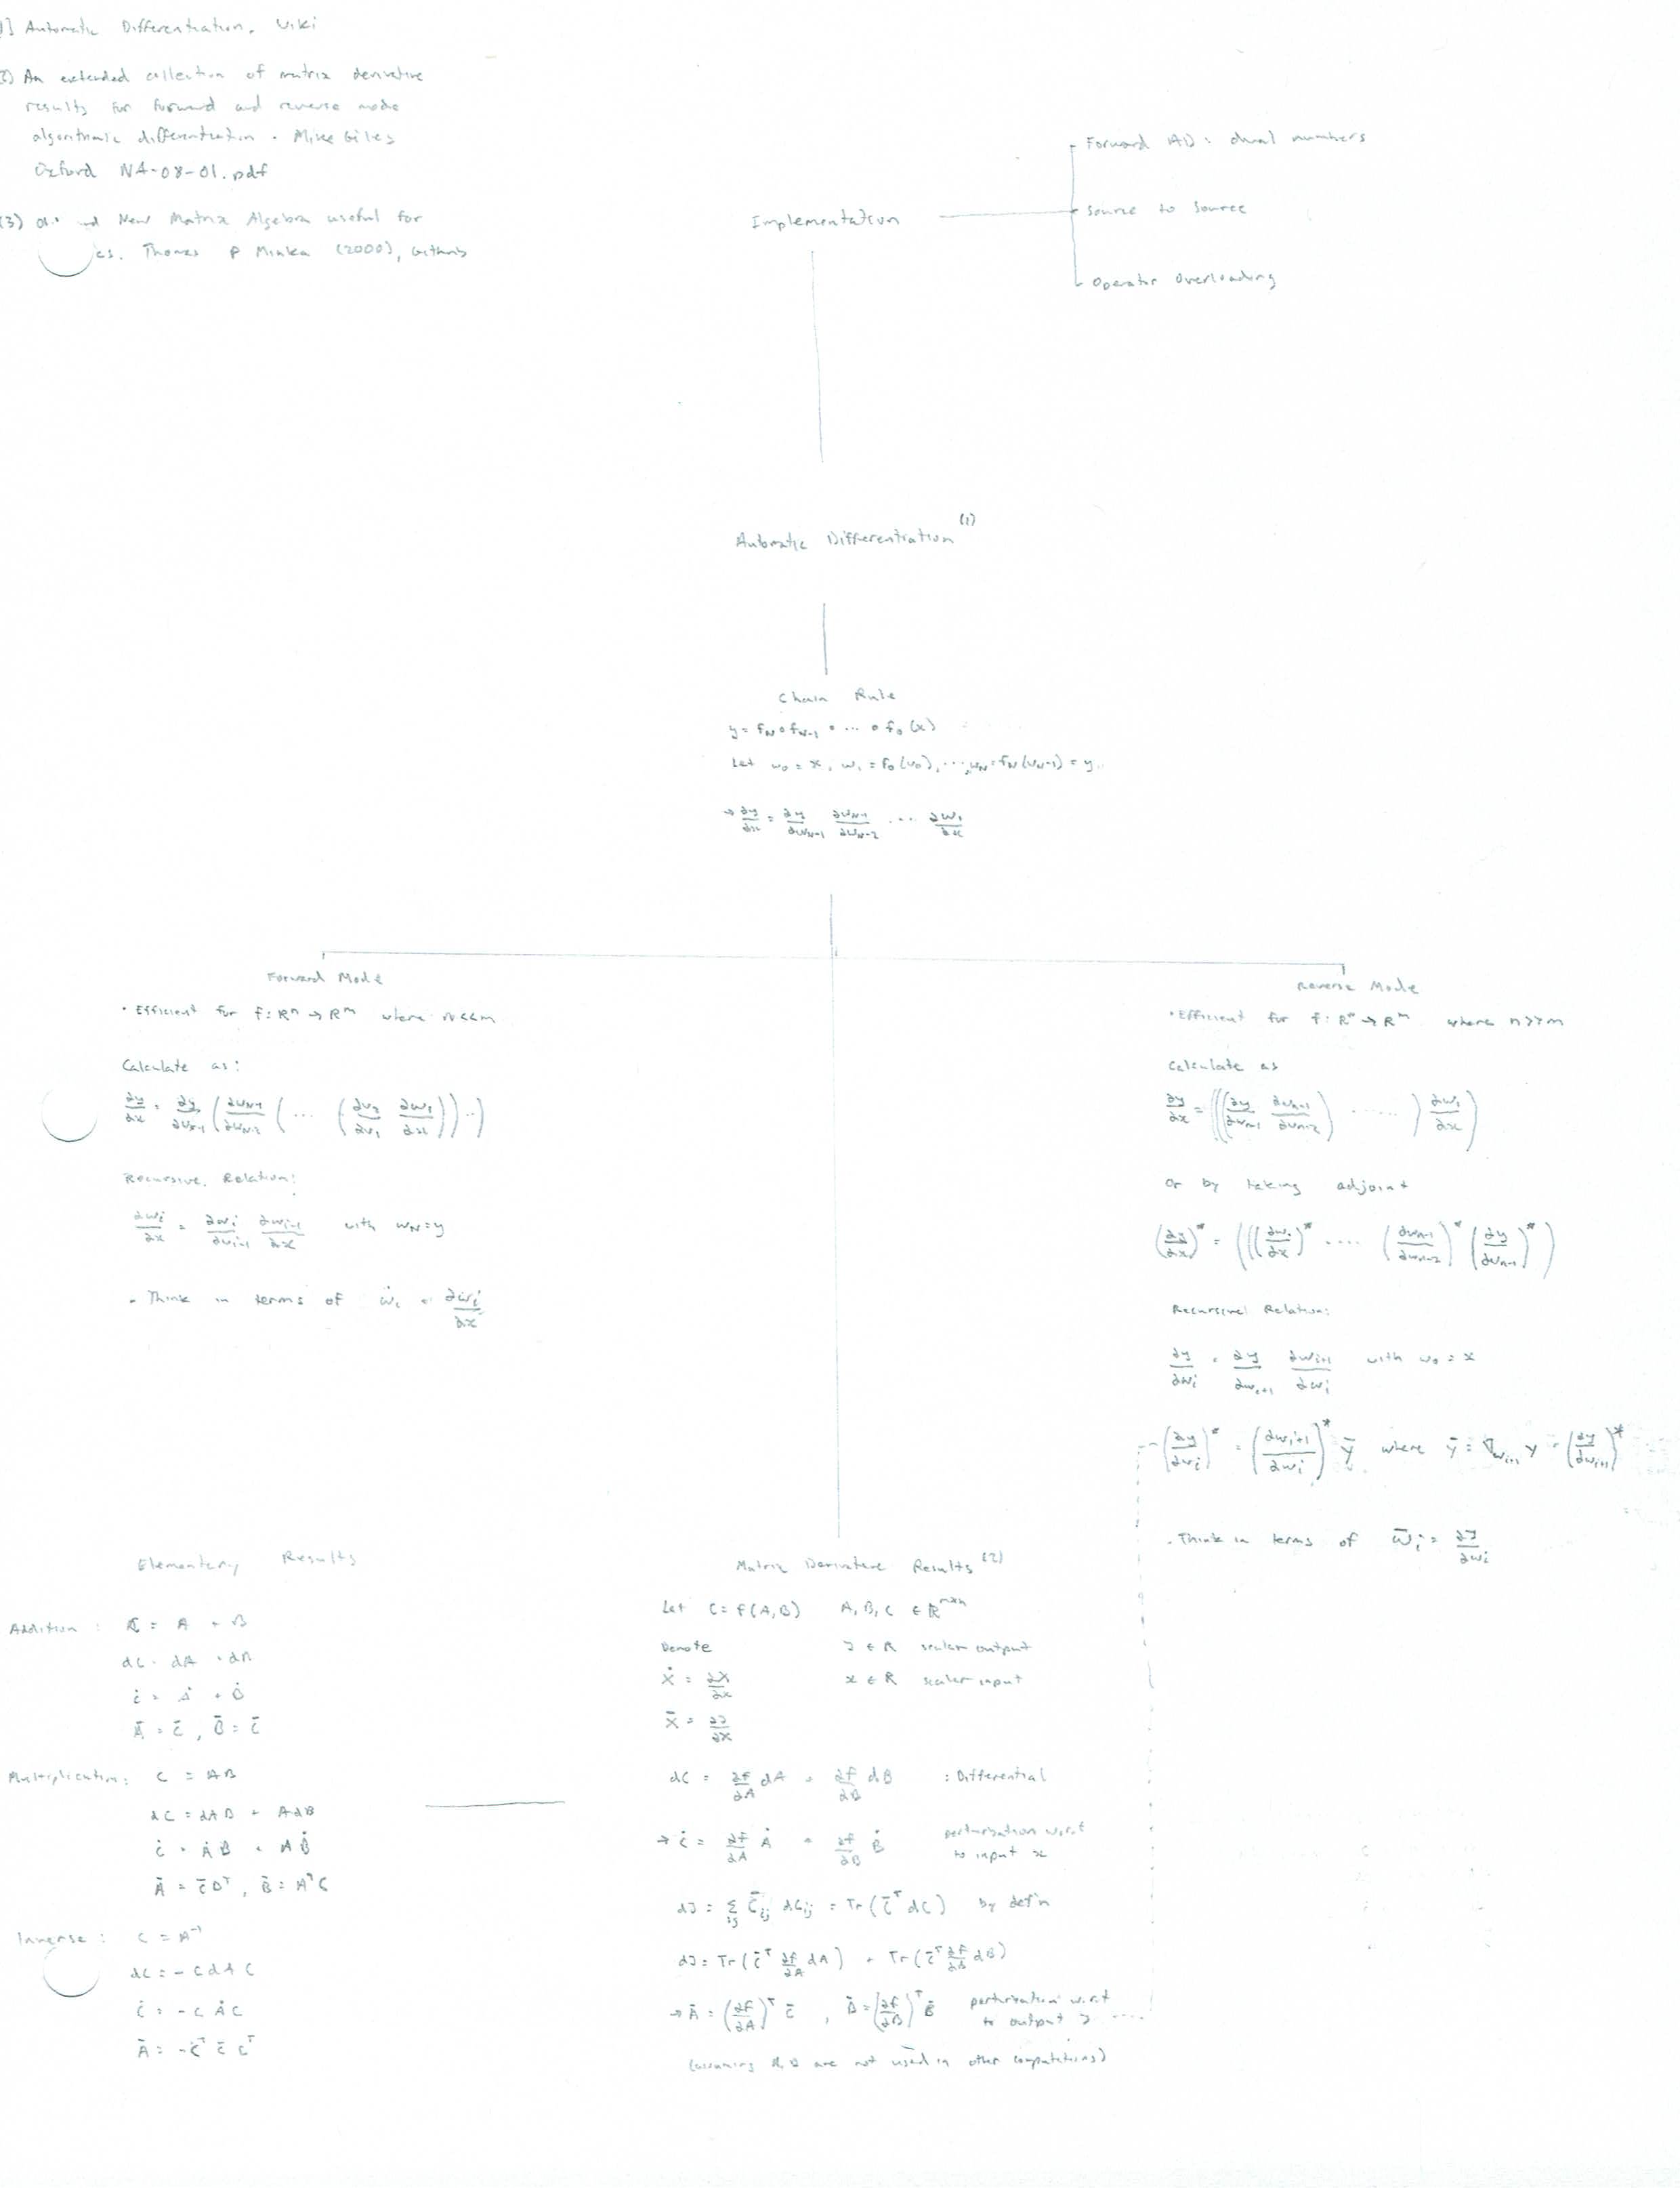 1] Automatic Differentiation, Wiki
2) An extended collection of matrix derivative
results for forward and reverse mode
algorithmic differentiation. Mike Giles
Oxford NA-08-01.pdf
(3) Old and New Matrix Algebra useful for
cs. Thomas P Minka (2000), Github
Implementation
Forward AD: dual numbers
Source to Source
Operator Overloading
Automatic Differentiation (1)
Chain Rule
y = f_N ∘ f_{N-1} ∘ ... ∘ f_0 (x)
Let w_0 = x, w_1 = f_0(w_0), ..., w_N = f_N(w_{N-1}) = y.
→ ∂y/∂x = ∂y/∂w_{N-1} ∂w_{N-1}/∂w_{N-2} ... ∂w_1/∂x
Forward Mode
• Efficient for f: R^n → R^m where n<<m
Calculate as:
∂y/∂x = ∂y/∂w_{N-1} (∂w_{N-1}/∂w_{N-2} (... (∂w_2/∂w_1 ∂w_1/∂x)) ..)
Recursive Relation:
∂w_i/∂x = ∂w_i/∂w_{i-1} ∂w_{i-1}/∂x with w_N = y
• Think in terms of ẇ_i = ∂w_i/∂x
Reverse Mode
• Efficient for f: R^n → R^m where n>>m
Calculate as
∂y/∂x = (((∂y/∂w_{n-1} ∂w_{n-1}/∂w_{n-2}) ......) ∂w_1/∂x)
Or by taking adjoint
(∂y/∂x)* = (((∂w_1/∂x)* .... (∂w_{n-1}/∂w_{n-2})* (∂y/∂w_{n-1})*)
Recursive Relation:
∂y/∂w_i = ∂y/∂w_{i+1} ∂w_{i+1}/∂w_i with w_0 = x
(∂y/∂w_i)* = (∂w_{i+1}/∂w_i)* ȳ where ȳ = ∇_{w_{i+1}} y = (∂y/∂w_{i+1})*
• Think in terms of w̄_i = ∂J/∂w_i
Elementary Results
Addition: C = A + B
dC = dA + dB
Ċ = Ȧ + Ḃ
Ā = C̄, B̄ = C̄
Multiplication: C = AB
dC = dA B + A dB
Ċ = Ȧ B + A Ḃ
Ā = C̄ B^T, B̄ = A^T C
Inverse: C = A^{-1}
dC = -C dA C
Ċ = -C Ȧ C
Ā = -C^T C̄ C^T
Matrix Derivative Results (2)
Let C = f(A,B) A, B, C ∈ R^{m×n}
Denote J ∈ R scalar output
Ẋ = ∂X/∂x x ∈ R scalar input
X̄ = ∂J/∂X
dC = ∂f/∂A dA + ∂f/∂B dB : Differential
→ Ċ = ∂f/∂A Ȧ + ∂f/∂B Ḃ perturbation w.r.t
to input x
dJ = Σ_{ij} C̄_{ij} dC_{ij} = Tr(C̄^T dC) by def'n
dJ = Tr(C̄^T ∂f/∂A dA) + Tr(C̄^T ∂f/∂B dB)
→ Ā = (∂f/∂A)^T C̄, B̄ = (∂f/∂B)^T C̄ perturbation w.r.t
to output J
(assuming A, B are not used in other computations)